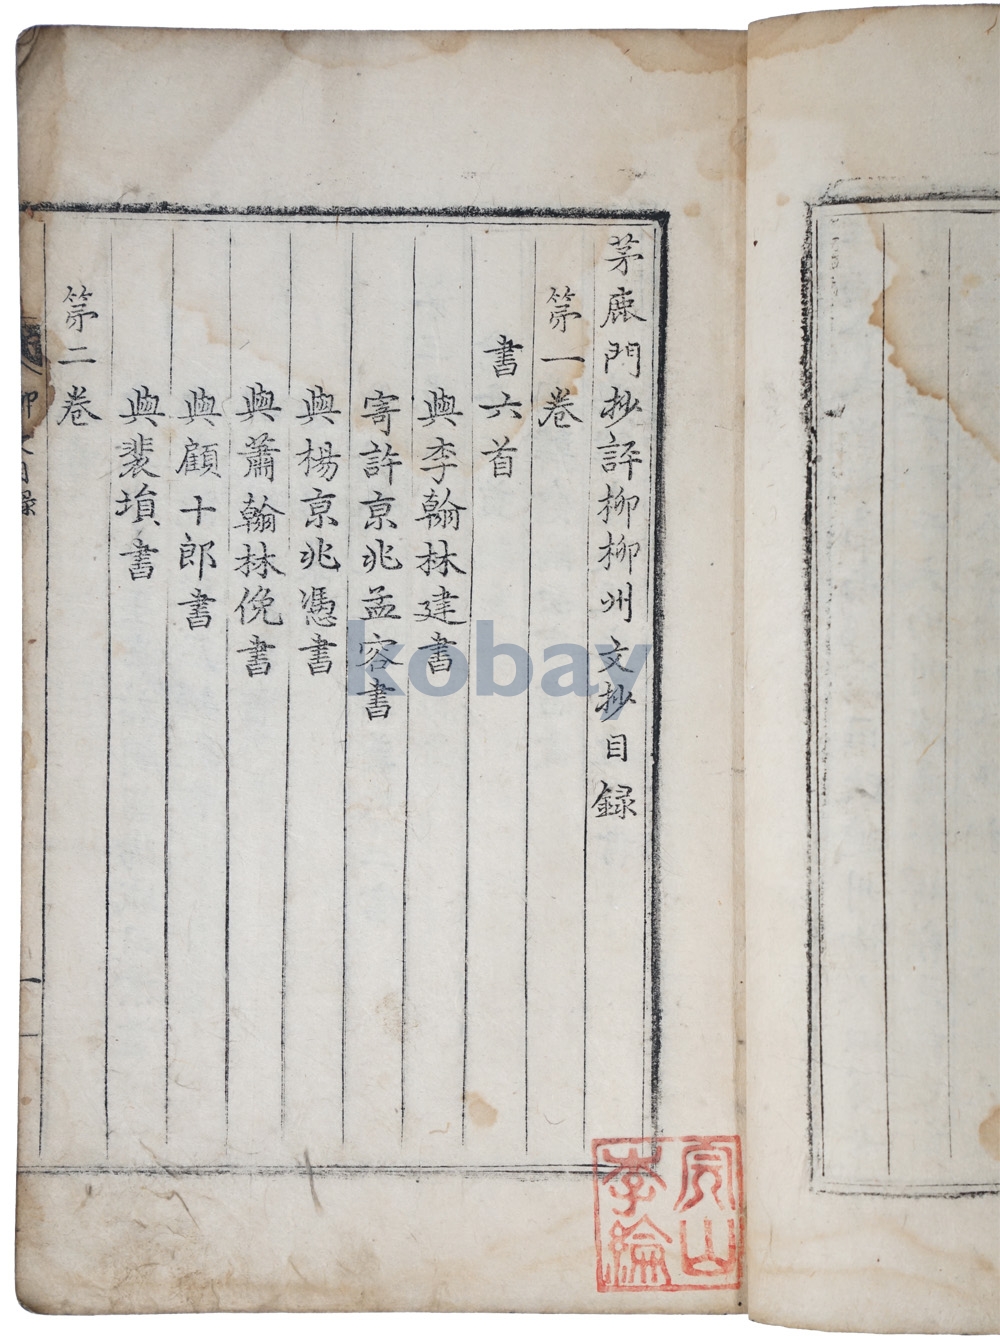 茅鹿門抄評柳柳州文抄目録
第一卷
書六首
與李翰林建書
寄許京兆孟容書
與楊京兆憑書
與蕭翰林俛書
與顧十郎書
與裴塤書
第二卷
目録
一
完山
李綸
kobay